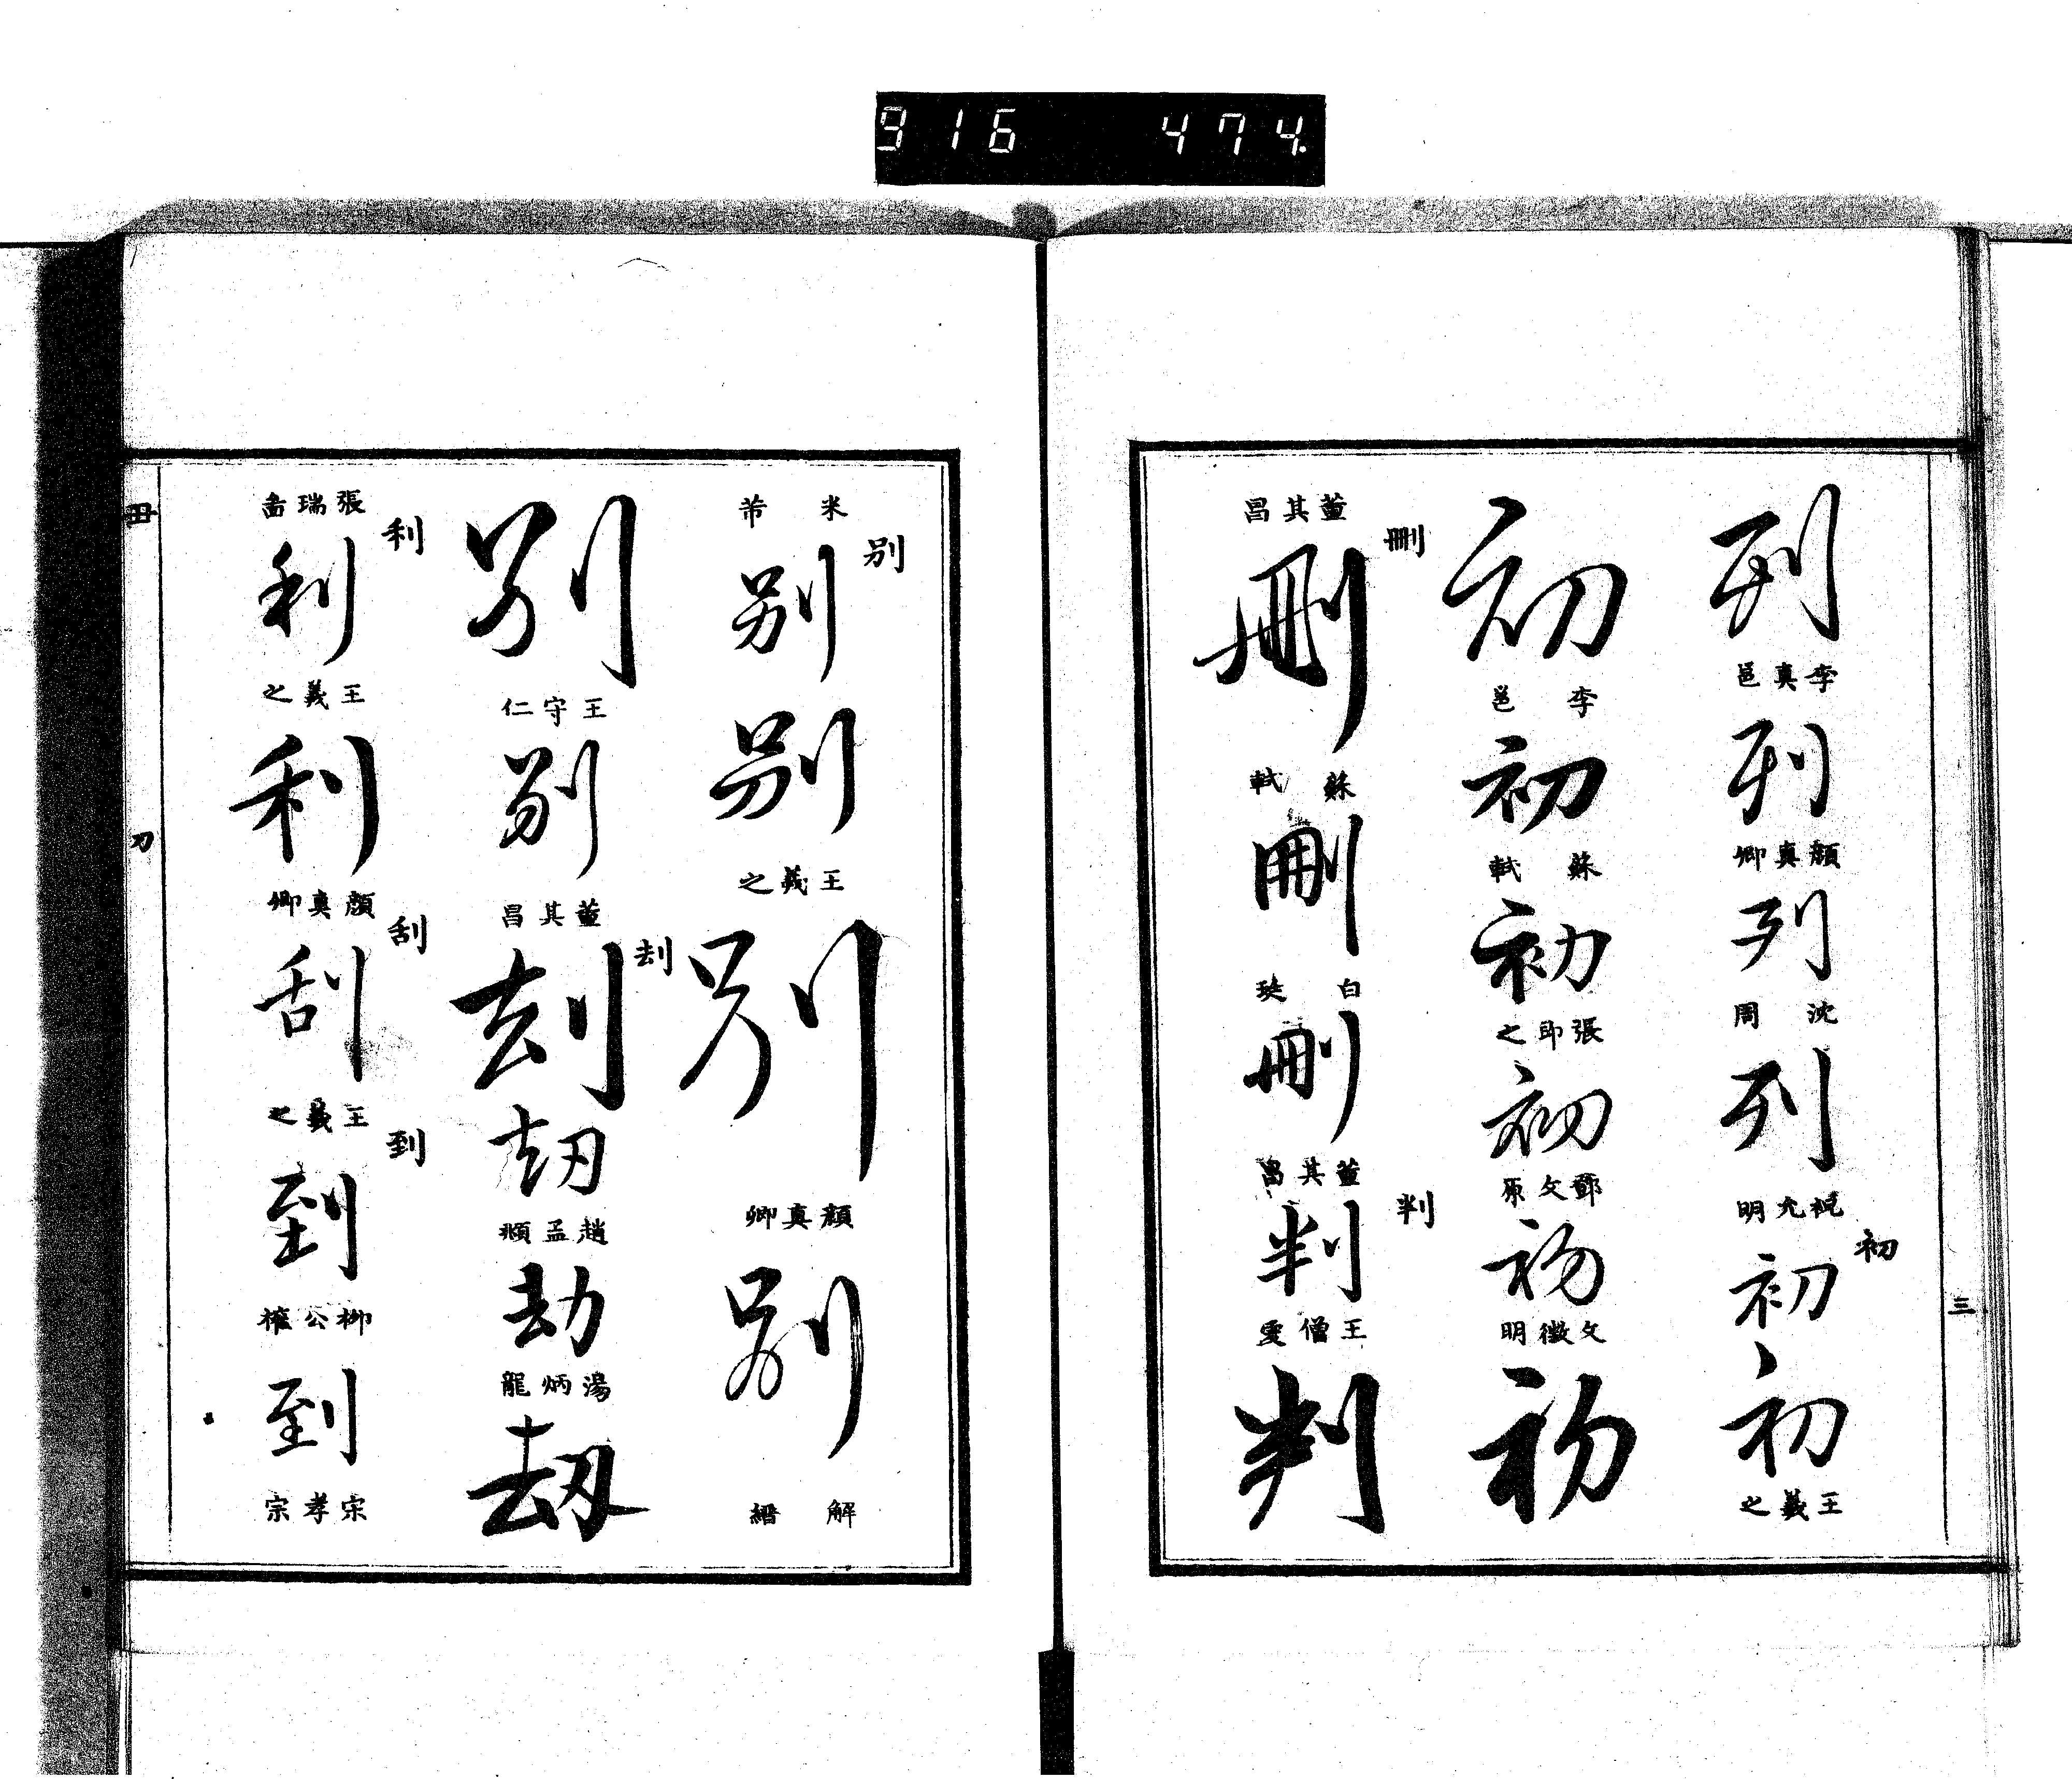 916 474.
三
列
李真邕
列
顏真卿
列
沈周
列
祝允明
初
初
初
王羲之
初
李邕
初
蘇軾
初
張即之
初
鄧文原
初
文徵明
初
刪
董其昌
刪
蘇軾
刪
白珽
刪
董其昌
判
判
王僧虔
判
別
米芾
別
別
王羲之
別
顏真卿
別
解縉
別
王守仁
別
董其昌
刦
刦
刼
趙孟頫
劫
湯炳龍
刼
利
張瑞圖
利
王羲之
利
顏真卿
刮
刮
王羲之
到
到
柳公權
到
宋孝宗
丑
刀